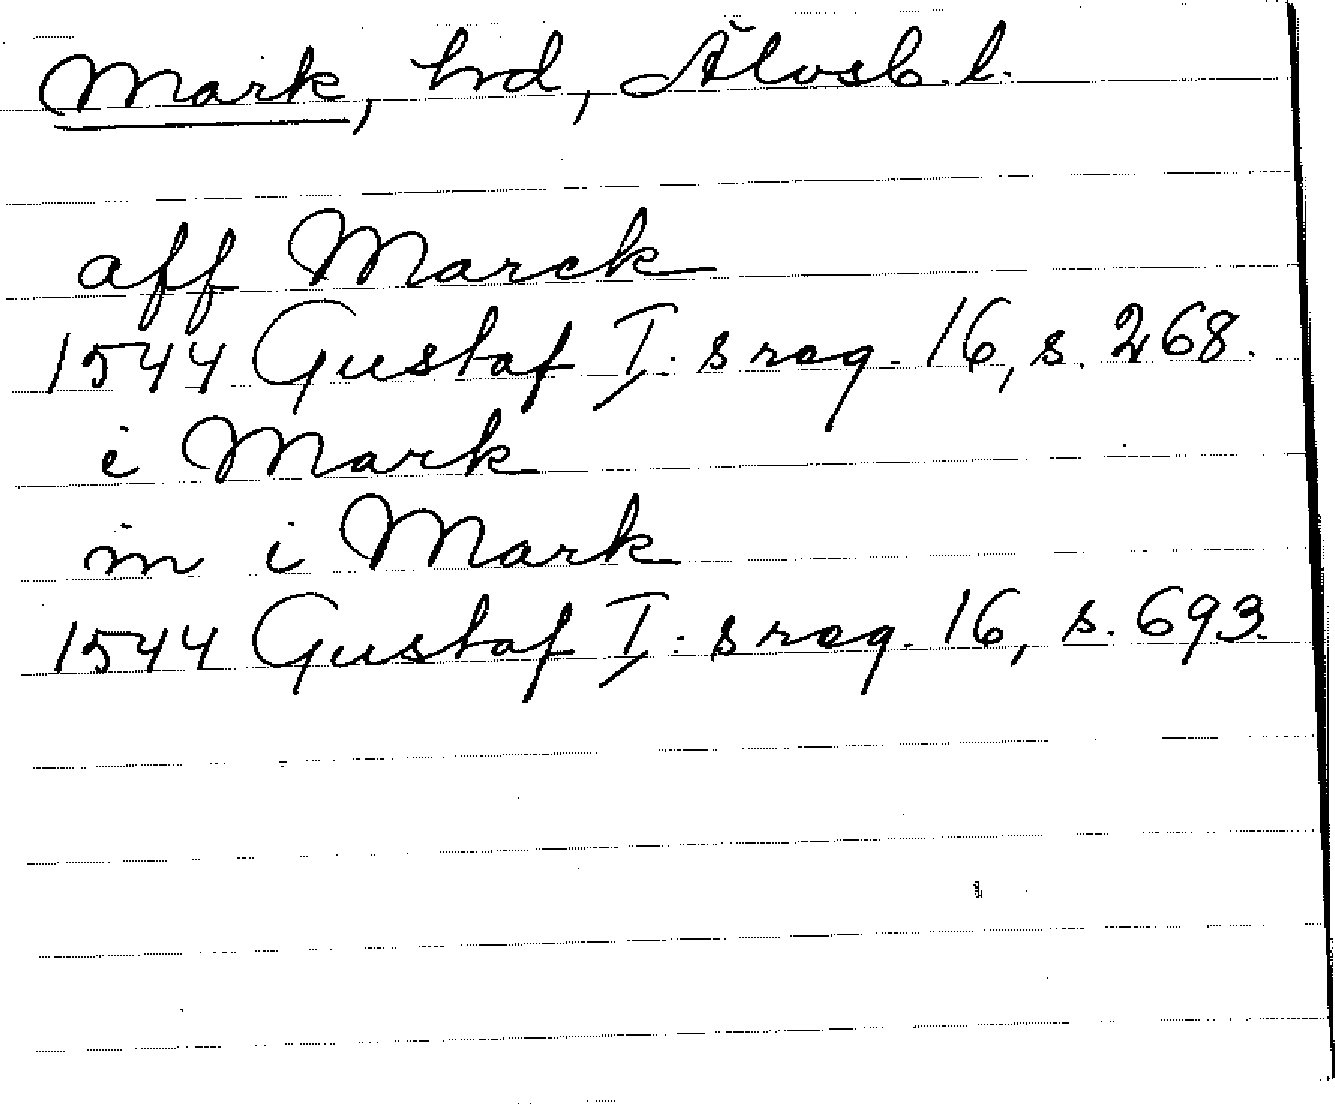 Mark, hrd, Älvsb. l.
aff Marck
1544 Gustaf I:s reg. 16, s. 268.
i Mark
in i Mark
1544 Gustaf I:s reg. 16, s. 693.